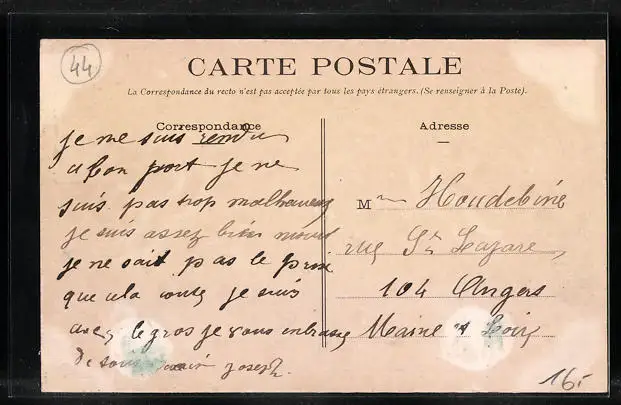 44
CARTE POSTALE
La Correspondance du recto n'est pas acceptée par tous les pays étrangers. (Se renseigner à la Poste).
Correspondance
je me suis rendu
a bon port je ne
suis pas trop malheureux
je suis assez bien
je ne sait pas le prix
que cela je suis
avec le gros je vous embrasse
joseph.
Adresse
Mme Houdebine
rue St Lazare
104 Angers
Maine et Loire
16.-